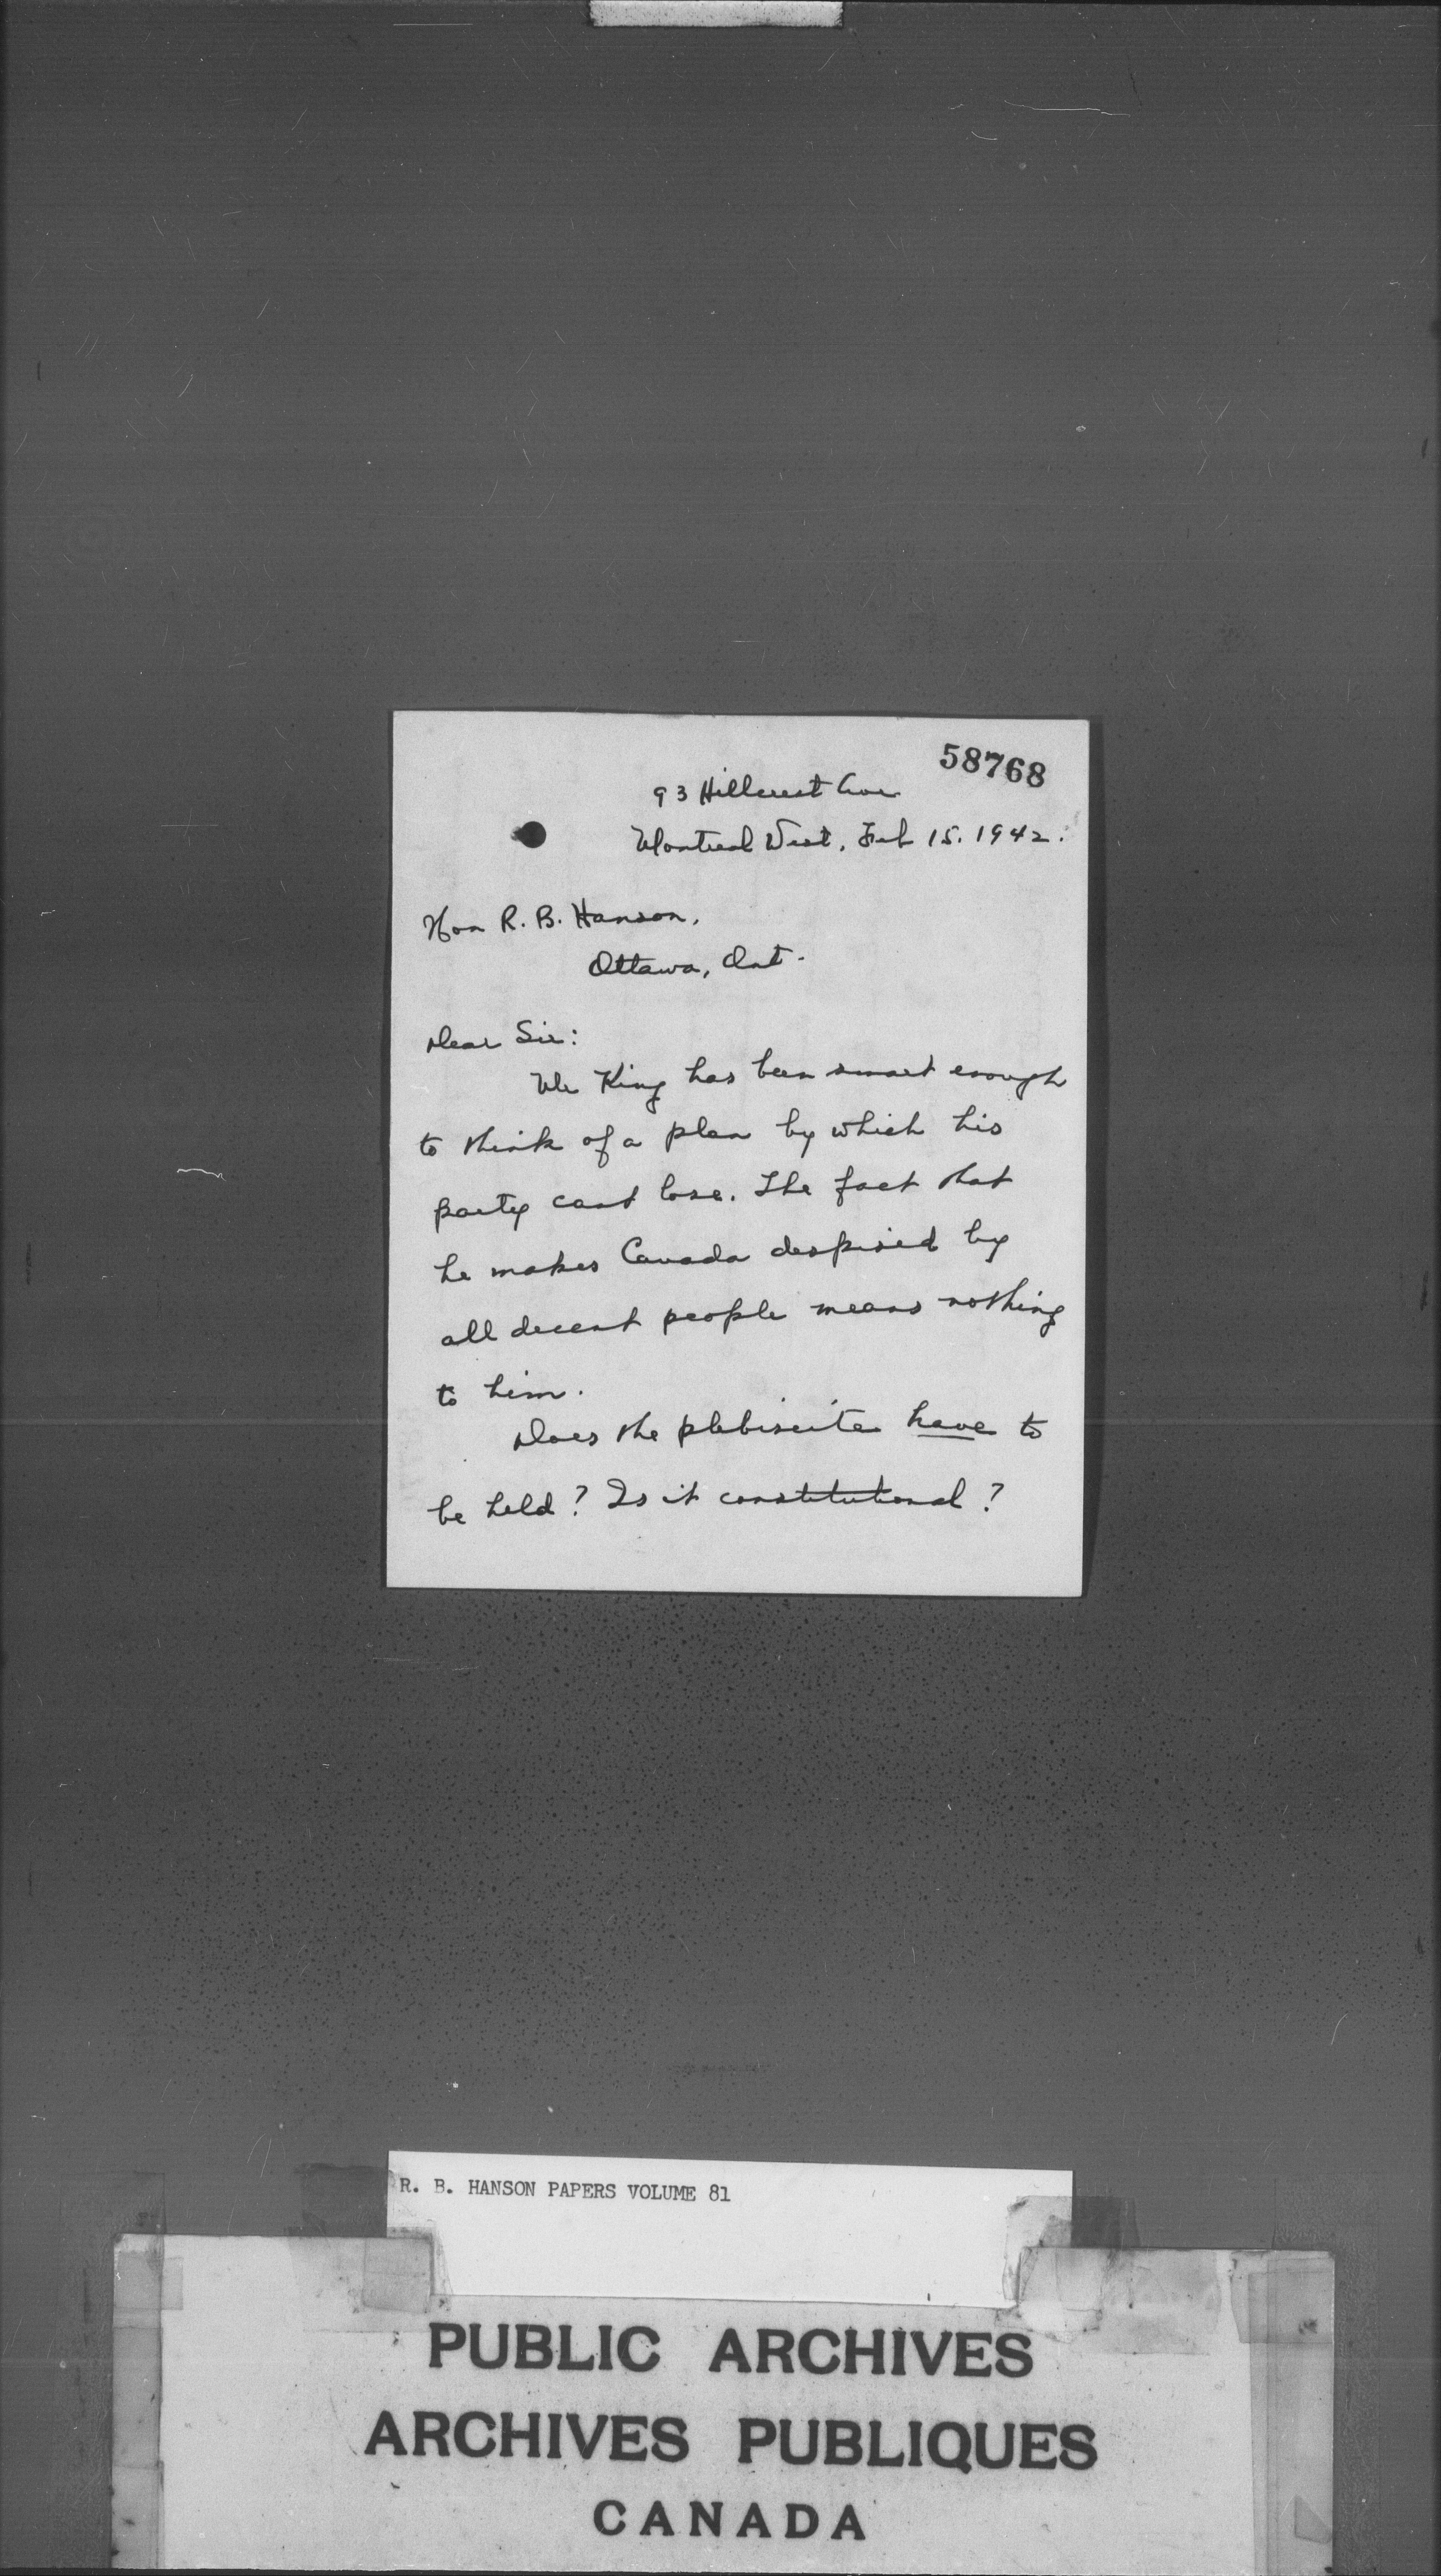 58768
93 Hillcrest Ave
Montreal West, Feb 15. 1942.
Hon R. B. Hanson,
Ottawa, Ont.
Dear Sir:
Mr King has been smart enough
to think of a plan by which his
party cant lose. The fact that
he makes Canada despised by
all decent people means nothing
to him.
Does the plebiscite have to
be held? Is it constitutional?
R. B. HANSON PAPERS VOLUME 81
PUBLIC ARCHIVES
ARCHIVES PUBLIQUES
CANADA